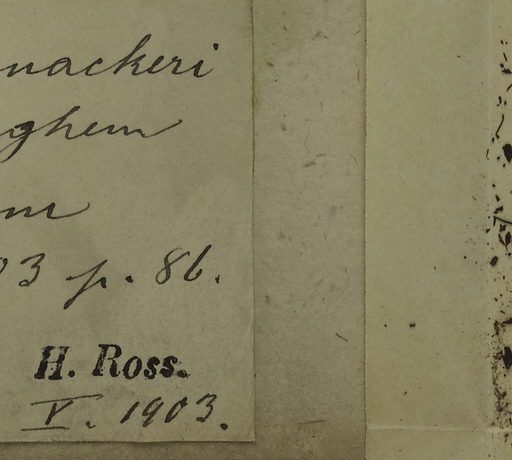 nackeri
ghem
m
03 p. 86.
H. Ross.
V. 1903.